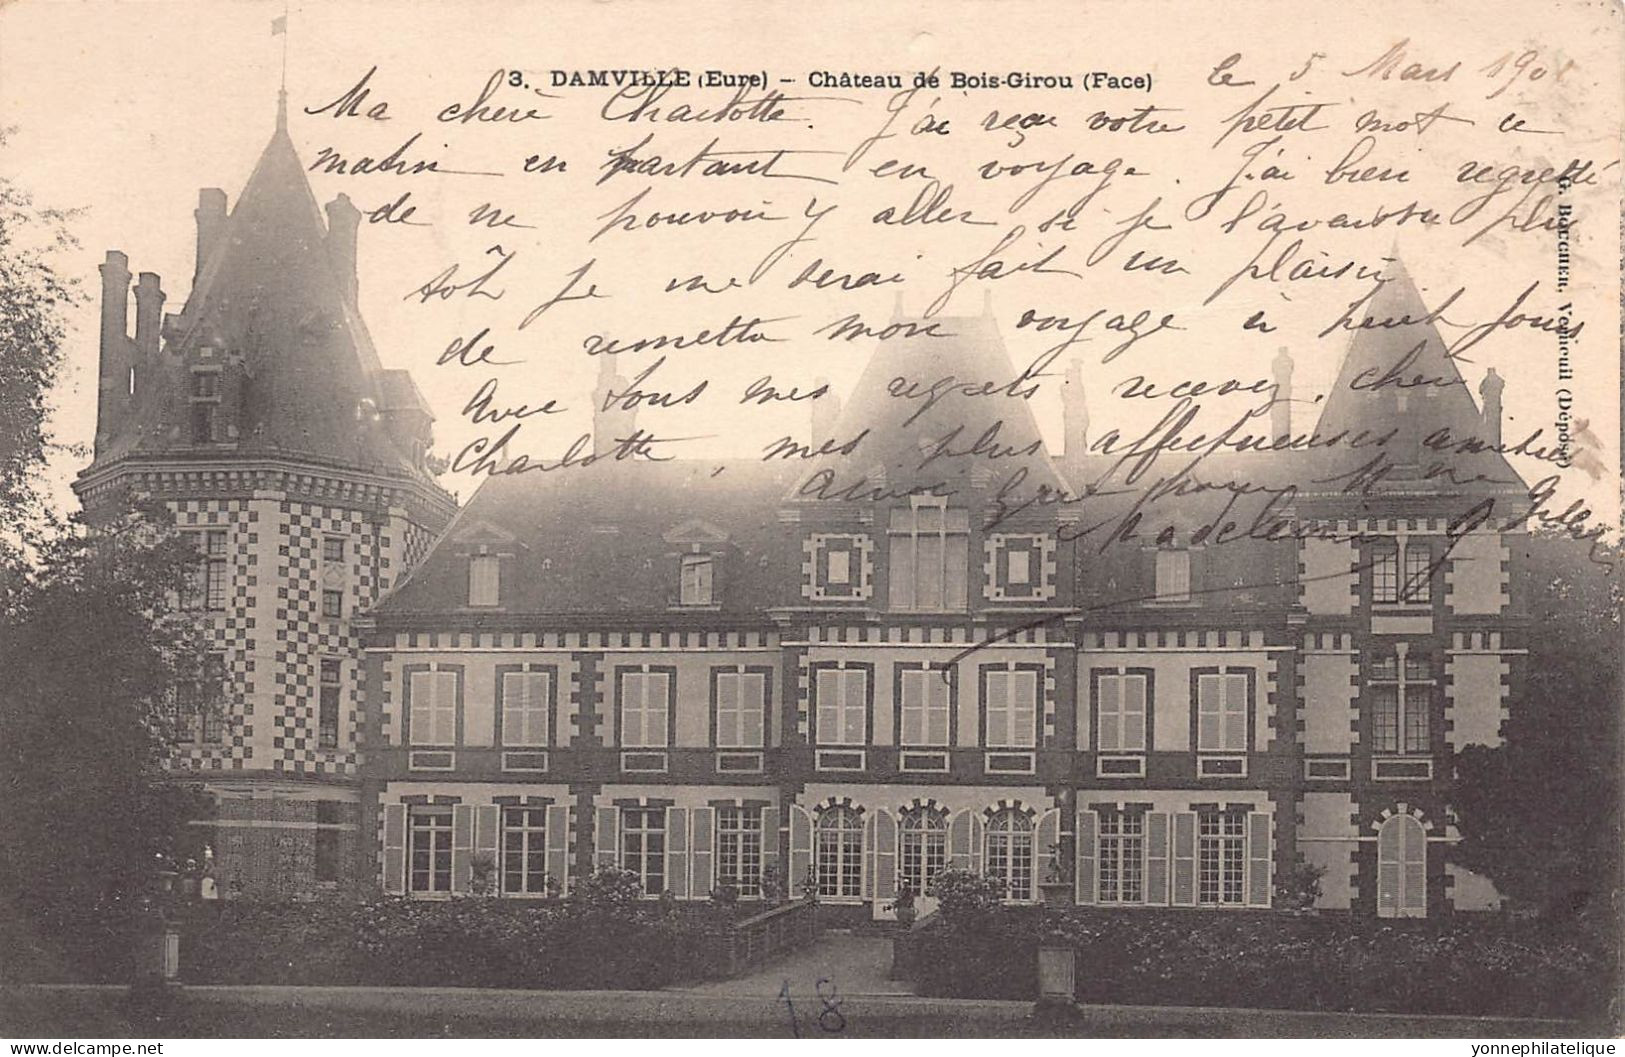 3. DAMVILLE (Eure) - Château de Bois-Girou (Face)
le 5 Mars 190
Ma chère Charlotte. J'ai reçu votre petit mot ce
matin en partant en voyage. J'ai bien regretté
de ne pouvoir y aller si je l'avais su plus
tôt je me serai fait un plaisir
de remettre mon voyage à huit jours
Avec tous mes regrets recevez, chère
Charlotte, mes plus affectueuses amitiés
ainsi que pour Mme
Madeleine G
G. BOUCHER, Verneuil (Déposé)
18
yonnephilatelique